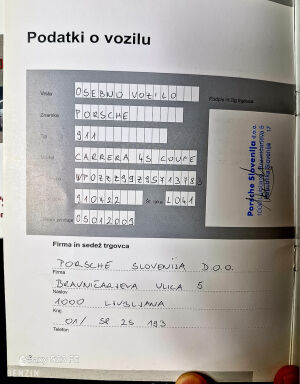 Podatki o vozilu
Vrsta OSEBNO VOZILO
Podpis in žig trgovca
Znamka PORSCHE
Tip 911
Model CARRERA 4S COUPE
WP0ZZZ99Z9S713783
910422 L041
05012009
Porsche Slovenija d.o.o.
1000 Ljubljana, Bravničarjeva 5
Firma in sedež trgovca
PORSCHE SLOVENIJA D.O.O.
Firma
BRAVNIČARJEVA ULICA 5
Naslov
1000 LJUBLJANA
Kraj
01/ 58 25 193
Telefon
BENZIN